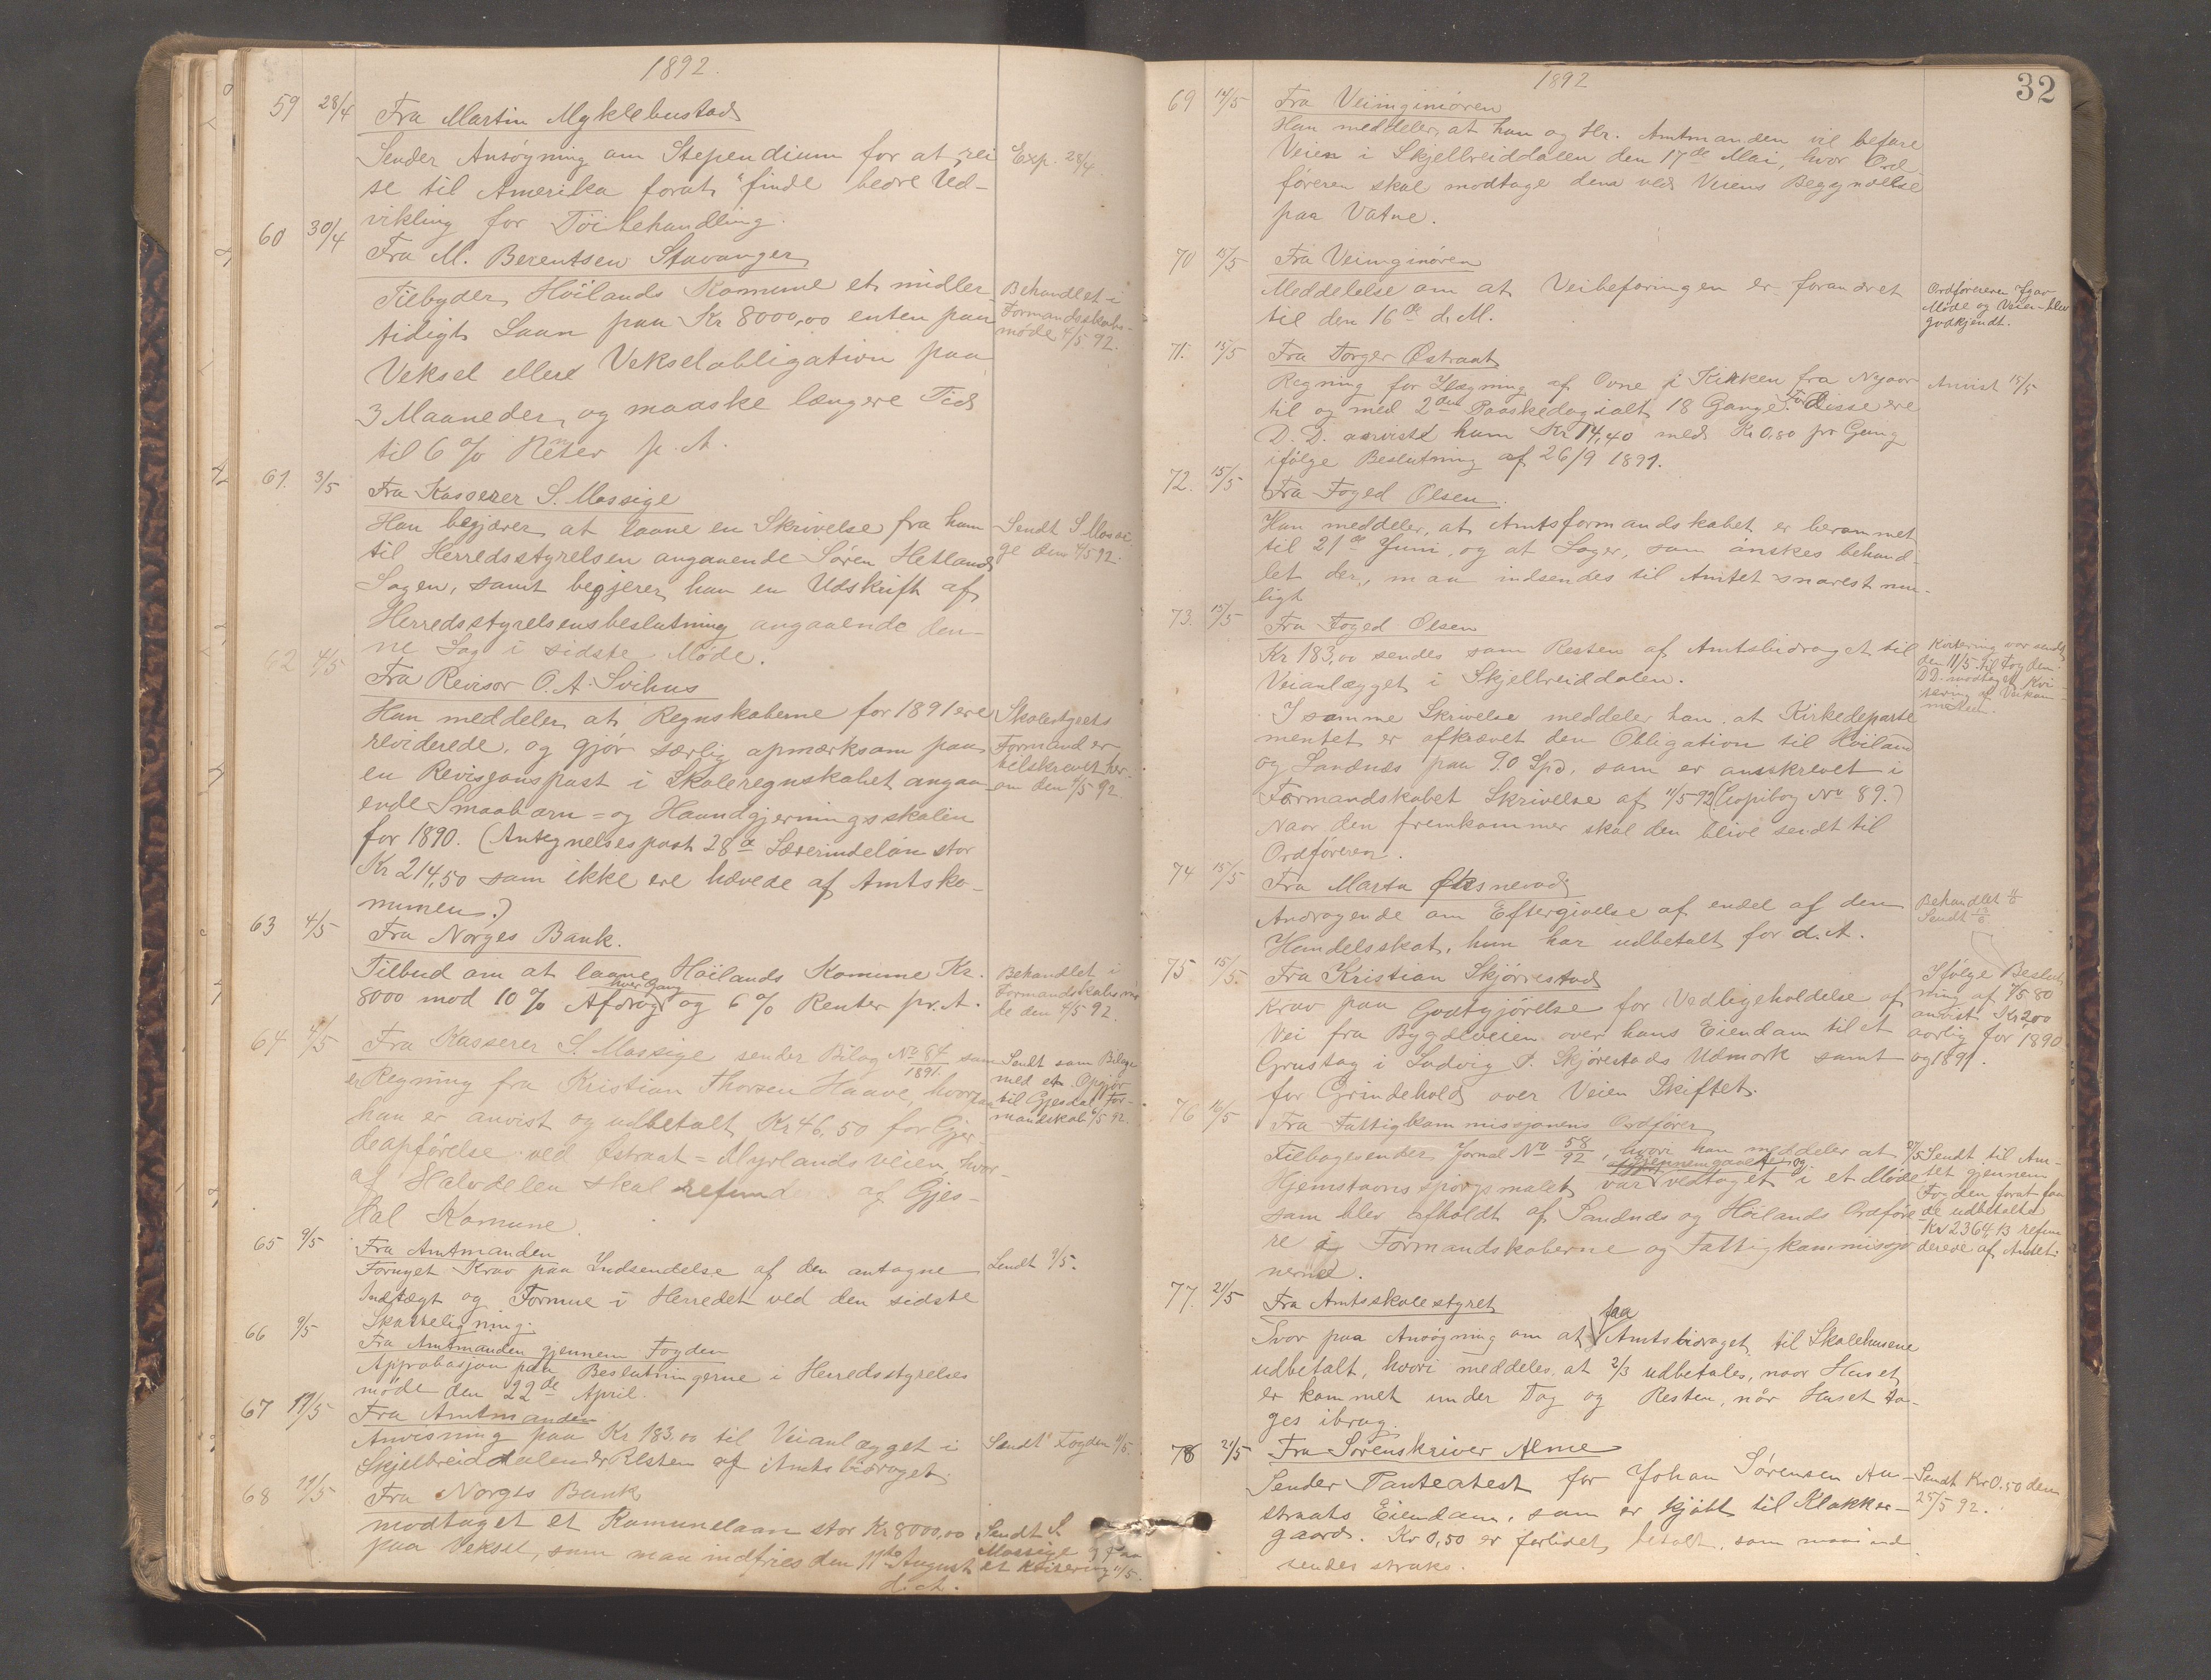 1892.
59 28/4 Fra Martin Myklebustad
Sender Ansøgning om Stependium for at rei Exp. 28/4.
se til Amerika forat finde bedre Ud-
vikling for Töibehandling.
60 30/4 Fra M. Berentsen Stavanger
Tilbyder Höilands Komune et midler- Behandlet i
tidigt Laan paa Kr 8000,00 enten paa Formandsskabs-
Veksel eller Vekselobligation paa møde 4/5 92.
3 Maaneder, og maaske længere Tid
til 6 % Renter p. A.
61. 3/5 Fra Kasserer S. Mossige
Han begjærer at laane en Skrivelse fra ham Sendt S Mossi
til Herredsstyrelsen angaaende Sören Hetlands ge den 4/5 92.
Sagen, samt begjerer han en Udskrift af
Herredsstyrelsensbeslutning angaaende den-
ne Sag i sidste Möde.
62 4/5 Fra Revisor O. A. Svihus
Han meddeler at Regnskaberne for 1891 ere Skolestyrets
reviderede, og gjör særlig opmærksom paa Formand er
en Revisjonspost i Skoleregnskabet angaa- tilskrevet her-
ende Smaabarn- og Haandgjerningsskolen om den 4/5 92.
for 1890. (Antegnelsespost 28 a Lærerindelön stor
Kr 214,50 som ikke ere hævede af Amtsko-
munen.)
63 4/5 Fra Norges Bank.
Tilbud om at laane Höilands Komune Kr. Behandlet i
8000 mod 10 % Afdrag hver Gang og 6 % Renter pr. A. Formandskabsmö
de den 4/5 92.
64 4/5 Fra Kasserer S. Mossige sender Bilag No 84/1891. som Sendt som Bilage
er Regning fra Kristian Thorsen Haave, hvorpaa med et Opgjör
han er anvist og udbetalt Kr 46,50 for Gjer- til Gjesdal For-
deopförelse ved Östraat-Myrlandsveien, hvor- mandskab 6/5 92.
af Halvdelen skal refunderes af Gjes-
dal Komune.
65 9/5 Fra Amtmanden
Fornyet Krav paa Indsendelse af den antagne Sendt 9/5.
Indtægt og Formue i Herredet ved den sidste
Skatteligning.
66 9/5 Fra Amtmanden gjennem Fogden
Approbasjon paa Beslutningerne i Herredsstyrelses
möde den 22de April.
67 11/5 Fra Amtmanden
Anvisning paa Kr 183,00 til Veianlægget i Sendt Fogden 11/5.
Skjelbreiddalen er Resten af Amtsbidraget.
68 11/5 Fra Norges Bank
modtaget et Komunelaan stor Kr 8000,00 Sendt S.
paa Veksel, som maa indfries den 11te August Mossige og faa
d. A. et kvitering 11/5.
32
1892
69 14/5 Fra Veiinginiören
Han meddeler, at han og Hr. Amtmanden vil befare
Veien i Skjelbreiddalen den 17de Mai, hvor Ord-
föreren skal modtage dem ved Veiens Begyndelse
paa Vatne.
70 15/5 Fra Veiinginören
Meddelelse om at Veibefaringen er forandret Ordföreren gav
til den 16de d. M. Møde og Veien blev
godkjendt.
71. 15/5 Fra Torger Östraat
Regning for Ilægning af Ovne i Kirken fra Nyaar Anvist 15/5
til og med 2den Paaskedag ialt 18 Gange. For disse ere
D. D. anviste ham Kr 14,40 med Kr 0,80 pr Gang
ifölge Beslutning af 26/9 1891.
72. 15/5 Fra Foged Olsen.
Han meddeler, at Amtsformandskabet er berammet
til 21de Juni, og at Sager, som önskes behand-
let der, maa indsendes til Amtet snarest mu-
ligt
73. 15/5 Fra Foged Olsen
Kr 183,00 sendes som Resten af Amtsbidraget til Kvitering var sendt
Veianlægget i Skjelbreiddalen. den 11/5 til Fogden.
DD. modtaget Kvi-
tering af Veikom-
I samme Skrivelse meddeler han at Kirkedeparte
mentet er afkrævet den Obligation til Höiland
og Sandnæs paa 90 Spd, som er omskrevet i
Formandskabet Skrivelse af 11/5 92 (Copibog No 89.)
Naar den fremkommer skal den blive sendt til
Ordföreren.
74 15/5. Fra Marta Øksnevad
Andragende om Eftergivelse af endel af den Behandlet
Handelsskat, hun har udbetalt for d. A. Sendt
75 15/5. Fra Kristian Skjörrestad Ifölge Beslut
Krav paa Godtgjörelse for Vedligeholdelse af ning af 4/5 80
Vei fra Bygdeveien over hans Eiendom til et anvist Kr 2,00
Grustag i Ludvig P. Skjörestads Udmark samt aarlig for 1890
for Grindehold over Veien Skiftet. og 1891.
76 16/5 Fra Fattigkommissjonens Ordförer
Tilbagesender Jornal No 58/92, hvori han meddeler at 27/5 Sendt til Am-
Hjemstavnsspörgsmalet var gjennemgaaet og vedtaget i et Møde tet gjennem
som blev afholdt af Sandnæs og Höilands Ordföre Fogden forat faa
re i Formandskaberne og Fattigkommissjo de udbetalte
nerne. Kr 2364,13 refun
dereve af Amtet.
77. 21/5 Fra Amtsskolestyret
Svar paa Ansögning om at faa Amtsbidraget til Skolehusene
udbetalt, hvori meddeles at 2/3 udbetales, naar Huset
er kommet under Tag og Resten, når Huset ta-
ges ibrug.
78 21/5 Fra Sorenskriver Alme
Sender Panteatest for Johan Sörensen Au- Sendt Kr 0.50 den
straats Eiendom, som er kjöbt til Klokker- 25/5 92.
gaard. Kr 0,50 er forlidet betalt, som maa ind
sendes straks.